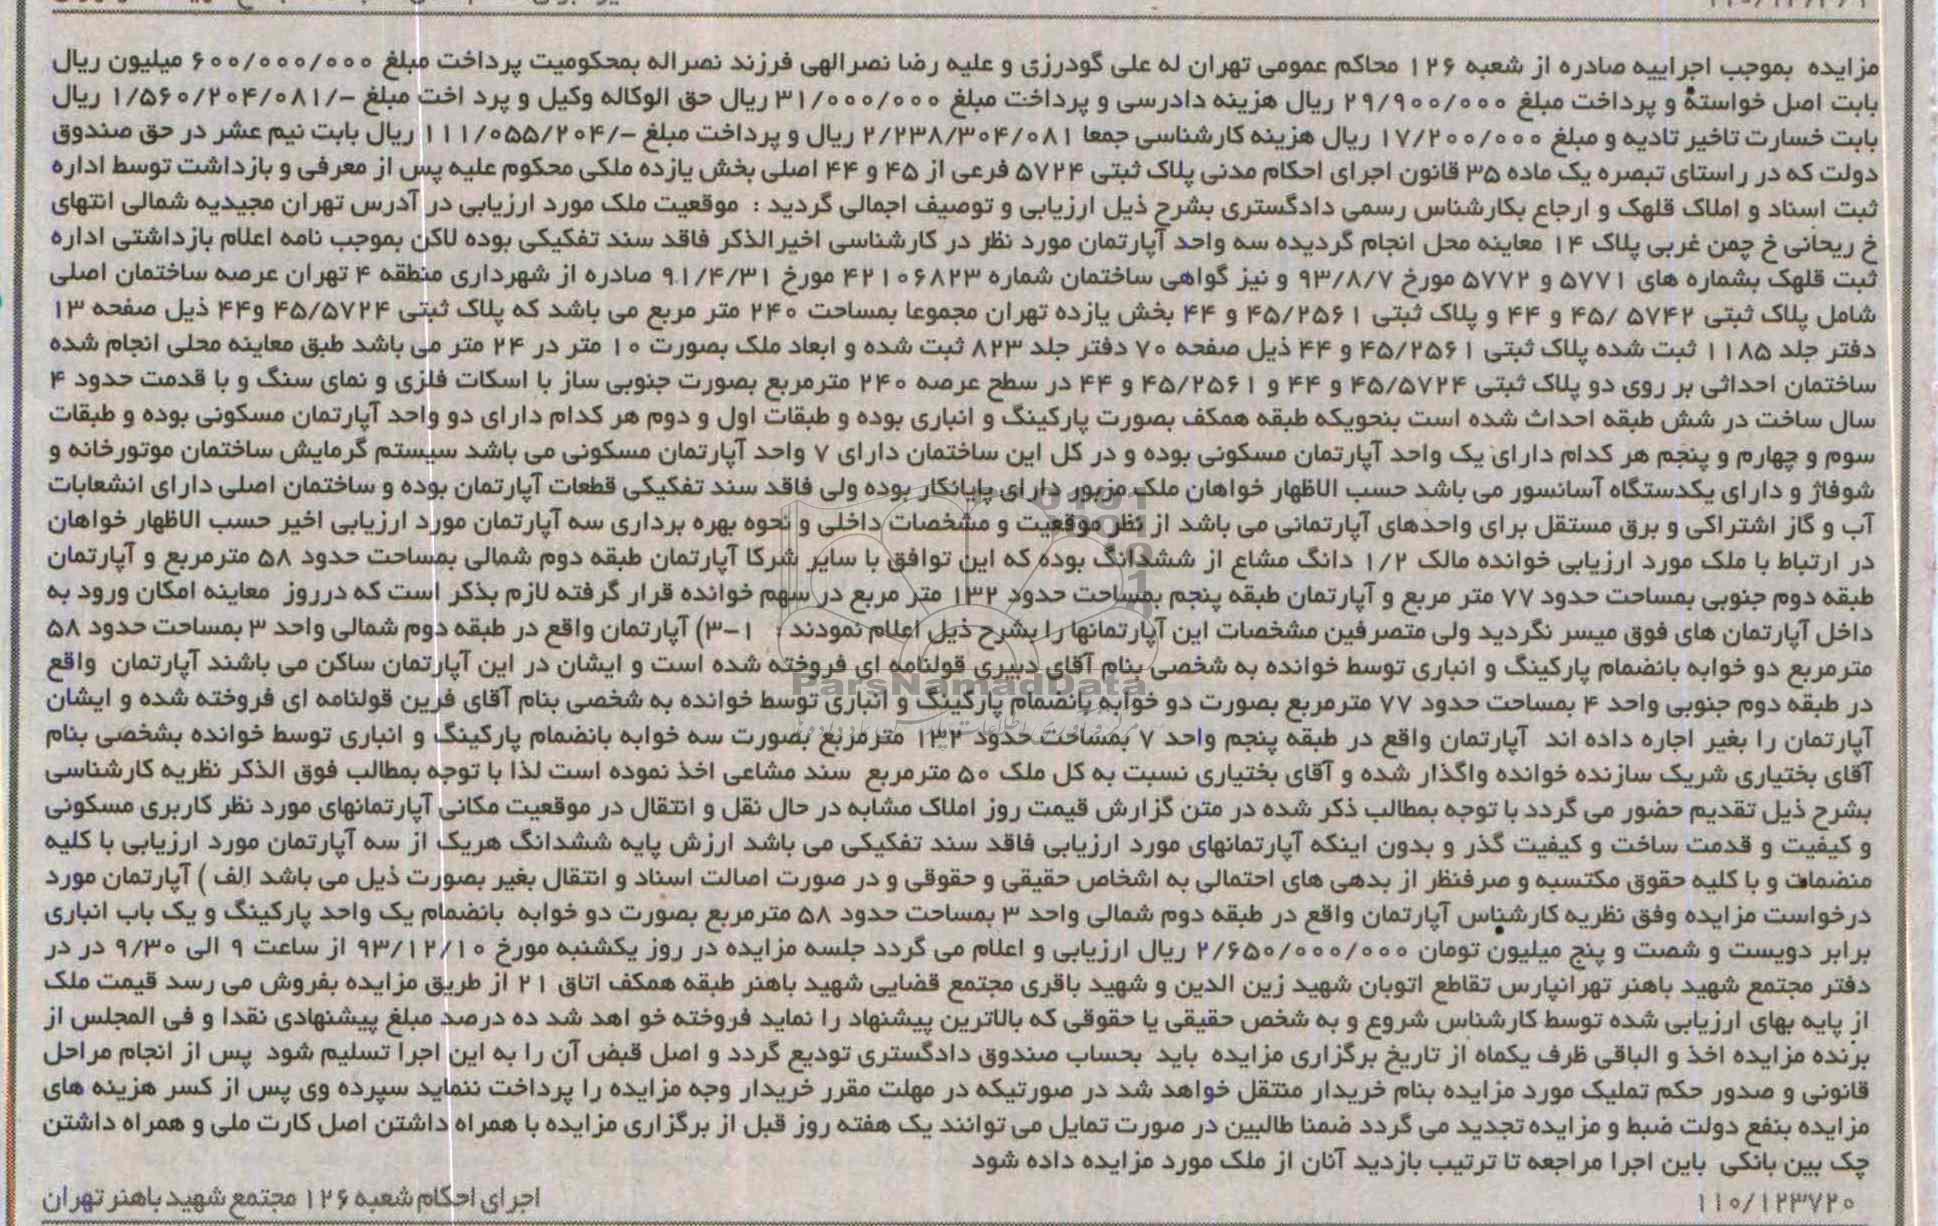 مزایده بموجب اجراییه صادره از شعبه ۱۲۶ محاکم عمومی تهران له علی گودرزی و علیه رضا نصرالهی فرزند نصراله بمحکومیت پرداخت مبلغ ۶۰۰/۰۰۰/۰۰۰ میلیون ریال
بابت اصل خواسته و پرداخت مبلغ ۲۹/۹۰۰/۰۰۰ ریال هزینه دادرسی و پرداخت مبلغ ۳۱/۰۰۰/۰۰۰ ریال حق الوکاله وکیل و پرد اخت مبلغ -/۱/۵۶۰/۲۰۴/۰۸۱ ریال
بابت خسارت تاخیر تادیه و مبلغ ۱۷/۲۰۰/۰۰۰ ریال هزینه کارشناسی جمعا ۲/۲۳۸/۳۰۴/۰۸۱ ریال و پرداخت مبلغ -/۱۱۱/۰۵۵/۲۰۴ ریال بابت نیم عشر در حق صندوق
دولت که در راستای تبصره یک ماده ۳۵ قانون اجرای احکام مدنی پلاک ثبتی ۵۷۲۴ فرعی از ۴۵ و ۴۴ اصلی بخش یازده ملکی محکوم علیه پس از معرفی و بازداشت توسط اداره
ثبت اسناد و املاک قلهک و ارجاع بکارشناس رسمی دادگستری بشرح ذیل ارزیابی و توصیف اجمالی گردید : موقعیت ملک مورد ارزیابی در آدرس تهران مجیدیه شمالی انتهای
خ ریحانی خ چمن غربی پلاک ۱۴ معاینه محل انجام گردیده سه واحد آپارتمان مورد نظر در کارشناسی اخیرالذکر فاقد سند تفکیکی بوده لاکن بموجب نامه اعلام بازداشتی اداره
ثبت قلهک بشماره های ۵۷۷۱ و ۵۷۷۲ مورخ ۹۳/۸/۷ و نیز گواهی ساختمان شماره ۴۲۱۰۶۸۲۳ مورخ ۹۱/۴/۳۱ صادره از شهرداری منطقه ۴ تهران عرصه ساختمان اصلی
شامل پلاک ثبتی ۵۷۴۲ /۴۵ و ۴۴ و پلاک ثبتی ۴۵/۲۵۶۱ و ۴۴ بخش یازده تهران مجموعا بمساحت ۲۴۰ متر مربع می باشد که پلاک ثبتی ۴۵/۵۷۲۴ و۴۴ ذیل صفحه ۱۳
دفتر جلد ۱۱۸۵ ثبت شده پلاک ثبتی ۴۵/۲۵۶۱ و ۴۴ ذیل صفحه ۷۰ دفتر جلد ۸۲۳ ثبت شده و ابعاد ملک بصورت ۱۰ متر در ۲۴ متر می باشد طبق معاینه محلی انجام شده
ساختمان احداثی بر روی دو پلاک ثبتی ۴۵/۵۷۲۴ و ۴۴ و ۴۵/۲۵۶۱ و ۴۴ در سطح عرصه ۲۴۰ مترمربع بصورت جنوبی ساز با اسکات فلزی و نمای سنگ و با قدمت حدود ۴
سال ساخت در شش طبقه احداث شده است بنحویکه طبقه همکف بصورت پارکینگ و انباری بوده و طبقات اول و دوم هر کدام دارای دو واحد آپارتمان مسکونی بوده و طبقات
سوم و چهارم و پنجم هر کدام دارای یک واحد آپارتمان مسکونی بوده و در کل این ساختمان دارای ۷ واحد آپارتمان مسکونی می باشد سیستم گرمایش ساختمان موتورخانه و
شوفاژ و دارای یکدستگاه آسانسور می باشد حسب الاظهار خواهان ملک مزبور دارای پایانکار بوده ولی فاقد سند تفکیکی قطعات آپارتمان بوده و ساختمان اصلی دارای انشعابات
آب و گاز اشتراکی و برق مستقل برای واحدهای آپارتمانی می باشد از نظر موقعیت و مشخصات داخلی و نحوه بهره برداری سه آپارتمان مورد ارزیابی اخیر حسب الاظهار خواهان
در ارتباط با ملک مورد ارزیابی خوانده مالک ۱/۲ دانگ مشاع از ششدانگ بوده که این توافق با سایر شرکا آپارتمان طبقه دوم شمالی بمساحت حدود ۵۸ مترمربع و آپارتمان
طبقه دوم جنوبی بمساحت حدود ۷۷ متر مربع و آپارتمان طبقه پنجم بمساحت حدود ۱۳۲ متر مربع در سهم خوانده قرار گرفته لازم بذکر است که درروز معاینه امکان ورود به
داخل آپارتمان های فوق میسر نگردید ولی متصرفین مشخصات این آپارتمانها را بشرح ذیل اعلام نمودند : ۱-۳) آپارتمان واقع در طبقه دوم شمالی واحد ۳ بمساحت حدود ۵۸
مترمربع دو خوابه بانضمام پارکینگ و انباری توسط خوانده به شخصی بنام آقای دبیری قولنامه ای فروخته شده است و ایشان در این آپارتمان ساکن می باشند آپارتمان واقع
در طبقه دوم جنوبی واحد ۴ بمساحت حدود ۷۷ مترمربع بصورت دو خوابه بانضمام پارکینگ و انباری توسط خوانده به شخصی بنام آقای فرین قولنامه ای فروخته شده و ایشان
آپارتمان را بغیر اجاره داده اند آپارتمان واقع در طبقه پنجم واحد ۷ بمساحت حدود ۱۳۲ مترمربع بصورت سه خوابه بانضمام پارکینگ و انباری توسط خوانده بشخصی بنام
آقای بختیاری شریک سازنده خوانده واگذار شده و آقای بختیاری نسبت به کل ملک ۵۰ مترمربع سند مشاعی اخذ نموده است لذا با توجه بمطالب فوق الذکر نظریه کارشناسی
بشرح ذیل تقدیم حضور می گردد با توجه بمطالب ذکر شده در متن گزارش قیمت روز املاک مشابه در حال نقل و انتقال در موقعیت مکانی آپارتمانهای مورد نظر کاربری مسکونی
و کیفیت و قدمت ساخت و کیفیت گذر و بدون اینکه آپارتمانهای مورد ارزیابی فاقد سند تفکیکی می باشد ارزش پایه ششدانگ هریک از سه آپارتمان مورد ارزیابی با کلیه
منضمات و با کلیه حقوق مکتسبه و صرفنظر از بدهی های احتمالی به اشخاص حقیقی و حقوقی و در صورت اصالت اسناد و انتقال بغیر بصورت ذیل می باشد الف ) آپارتمان مورد
درخواست مزایده وفق نظریه کارشناس آپارتمان واقع در طبقه دوم شمالی واحد ۳ بمساحت حدود ۵۸ مترمربع بصورت دو خوابه بانضمام یک واحد پارکینگ و یک باب انباری
برابر دویست و شصت و پنج میلیون تومان ۲/۶۵۰/۰۰۰/۰۰۰ ریال ارزیابی و اعلام می گردد جلسه مزایده در روز یکشنبه مورخ ۹۳/۱۲/۱۰ از ساعت ۹ الی ۹/۳۰ در در
دفتر مجتمع شهید باهنر تهرانپارس تقاطع اتوبان شهید زین الدین و شهید باقری مجتمع قضایی شهید باهنر طبقه همکف اتاق ۲۱ از طریق مزایده بفروش می رسد قیمت ملک
از پایه بهای ارزیابی شده توسط کارشناس شروع و به شخص حقیقی یا حقوقی که بالاترین پیشنهاد را نماید فروخته خو اهد شد ده درصد مبلغ پیشنهادی نقدا و فی المجلس از
برنده مزایده اخذ و الباقی ظرف یکماه از تاریخ برگزاری مزایده باید بحساب صندوق دادگستری تودیع گردد و اصل قبض آن را به این اجرا تسلیم شود پس از انجام مراحل
قانونی و صدور حکم تملیک مورد مزایده بنام خریدار منتقل خواهد شد در صورتیکه در مهلت مقرر خریدار وجه مزایده را پرداخت ننماید سپرده وی پس از کسر هزینه های
مزایده بنفع دولت ضبط و مزایده تجدید می گردد ضمنا طالبین در صورت تمایل می توانند یک هفته روز قبل از برگزاری مزایده با همراه داشتن اصل کارت ملی و همراه داشتن
چک بین بانکی باین اجرا مراجعه تا ترتیب بازدید آنان از ملک مورد مزایده داده شود
۱۱۰/۱۲۳۷۲۰ اجرای احکام شعبه ۱۲۶ مجتمع شهید باهنر تهران
ParsNamadData